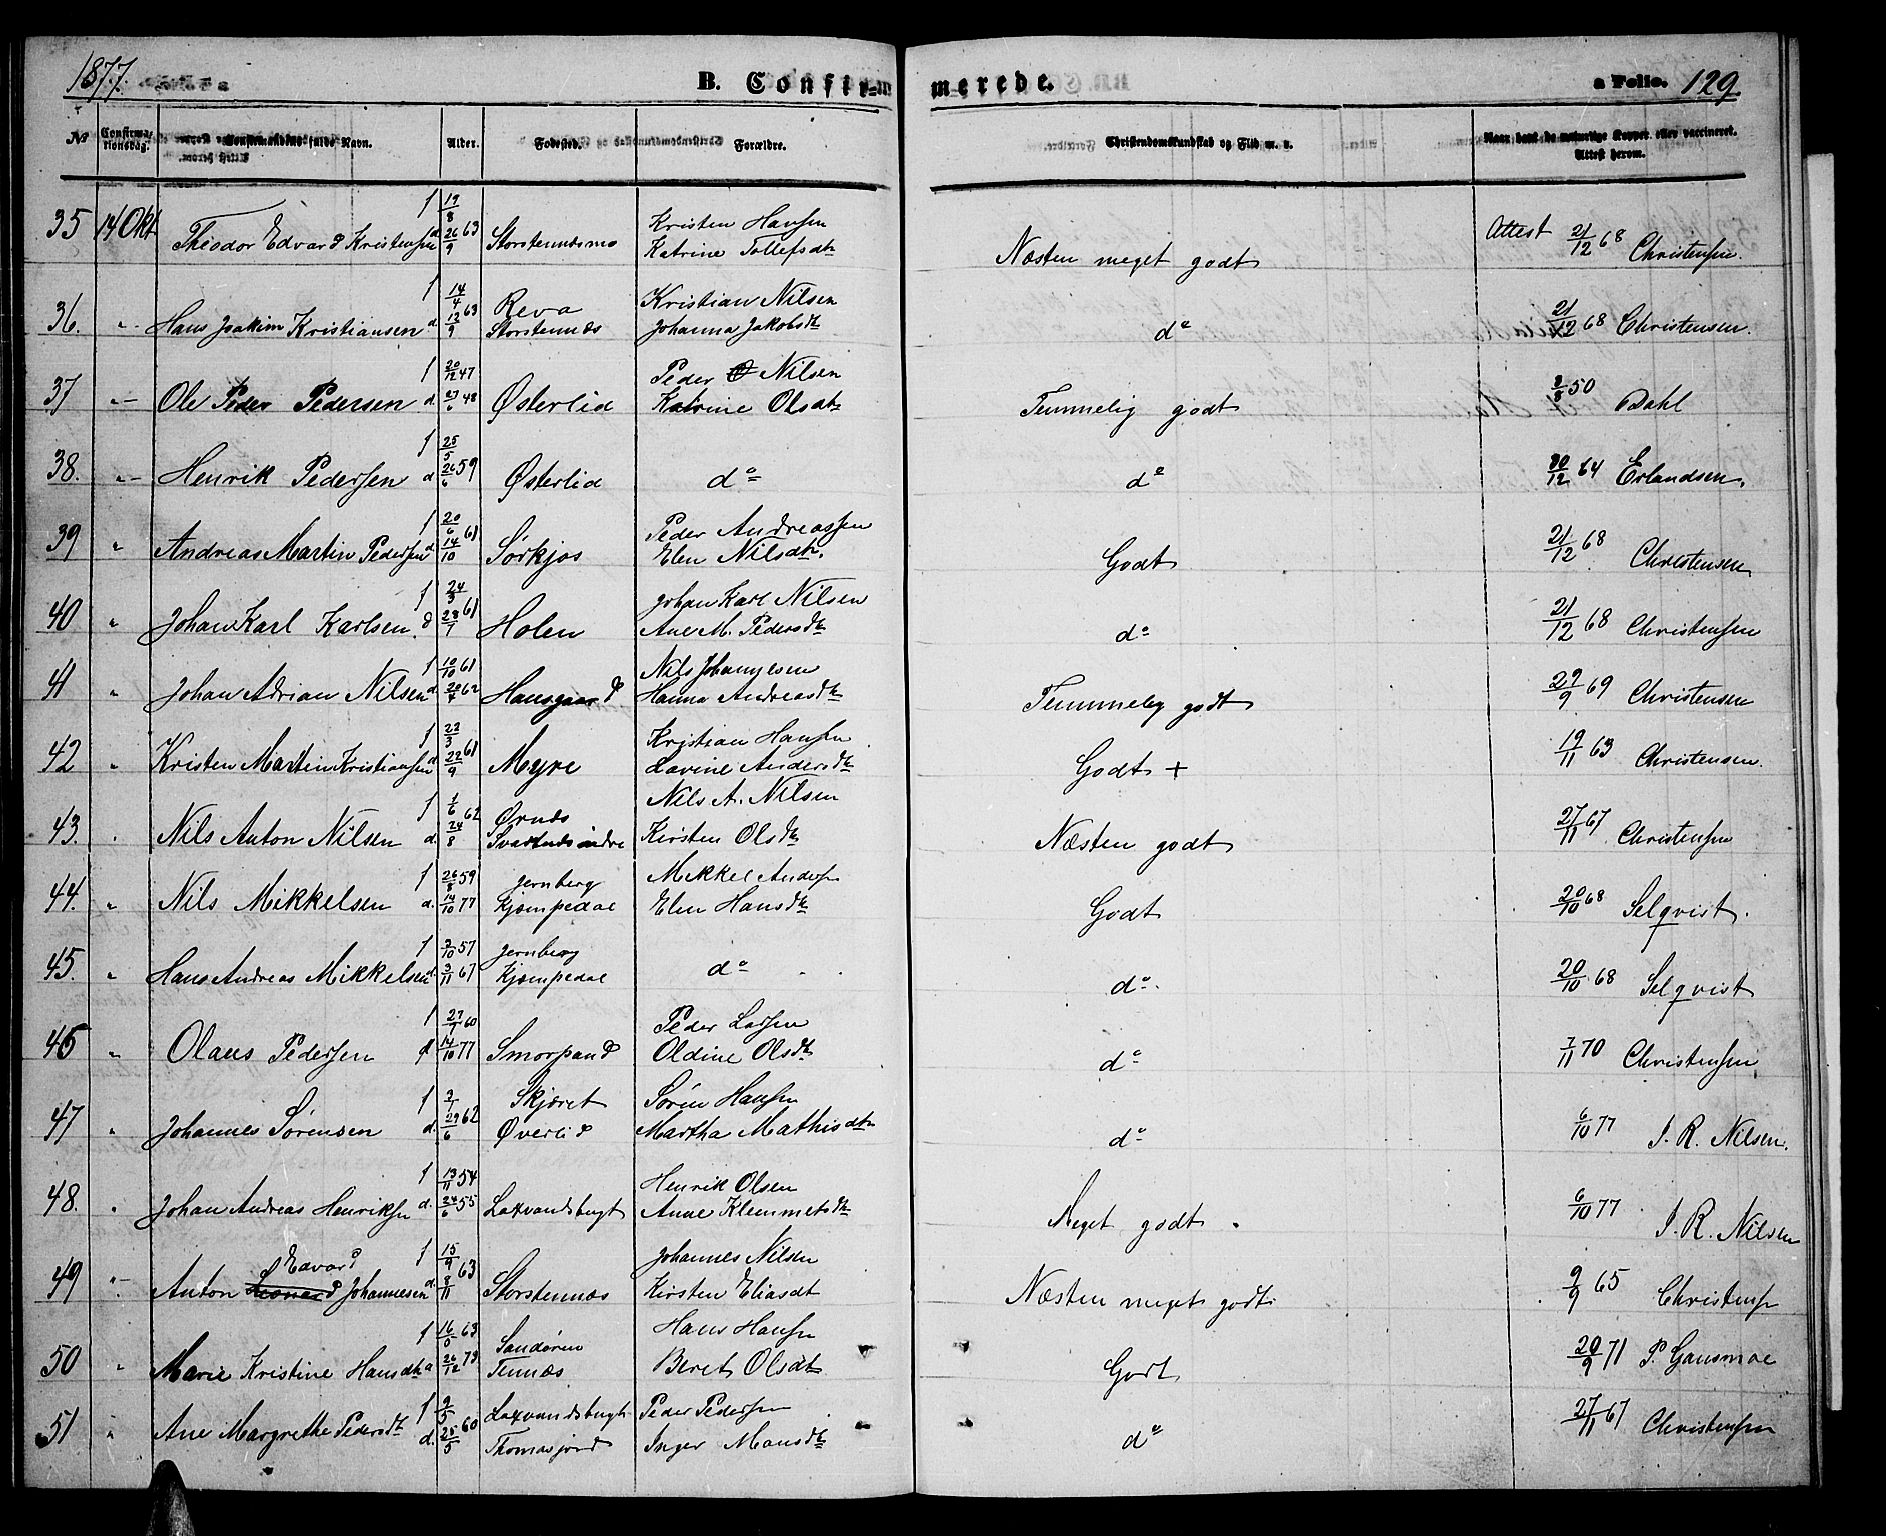 1877.
B. Confirmerede.
a Folio. 129.
№ Confirmationsdag. Confirmandens fulde Navn. Alder. Fødested. Forældre. Christendomskundskab og Flid m. v. Naar havt de naturlige Kopper eller vaccineret. Attest herom.
f 19/8 Kristen Hansen
35 14 Okt Theodor Edvard Kristensen d 26/9 63 Storstennesmo Katrine Tollefsdtr Næsten meget godt Attest 21/12 68 Christensen.
f 14/4 Reva Kristian Nilsen
36. " Hans Joakim Kristiansen d. 12/9 63 Storstennæs Johanna Jakobsdtr do 21/12 68 Christensen.
f 20/12 47 Peder Nilsen
37 " Ole Peder Pedersen d. 27/6 48 Østerlid Katrine Olsdtr Temmelig godt 8/8 50 Dahl
f 25/5
38. " Henrik Pedersen d. 26/6 59 Østerlid do do 30/12 64 Erlandsen.
f 20/6 Peder Andreassen
39 " Andreas Martin Pedersen d. 14/10 61 Sørkjos Elen Nilsdtr. Godt 21/12 68 Christensen
f 24/3 Johan Karl Nilsen
40 " Johan Karl Karlsen. d 28/7 61 Holen Ane M. Pedersdtr do 21/12 68 Christensen
f 10/10 61 Nils Johannesen
41 " Johan Adrian Nilsen d. 20/7 62 Hansgaard Hanna Andreasdtr Temmelig godt 29/9 69 Christensen
f 22/3 Kristian Hansen
42 " Kristen Martin Kristiansen d 22/9 61 Myre Lavine Andersdtr Godt + 19/11 63 Christensen.
f 1/6 Ørnæs Nils A. Nilsen
43. " Nils Anton Nilsen d. 24/8 62 Svartnæs indre Kirsten Olsdtr Næsten godt 27/11 67 Christensen
f 26/8 59 Jernberg Mikkel Anders
44. " Nils Mikkelsen d. 14/10 77 Kjæmpedal Elen Hansdtr Godt 20/10 68 Selqvist.
f 2/10 57 Jernberg
45. " Hans Andreas Mikkelsen d. 3/11 67 Kjæmpedal do do. 20/10 68 Selqvist
f 27/7 60 Peder Larsen
46 " Olaus Pedersen d 14/10 77 Smorpand Oldine Olsdtr do 7/11 70 Christensen
f 2/1 Skjæret Søren Hansen
47 " Johannes Sørensen d. 29/6 62 Øverlid Martha Mathisdtr do 6/10 77 J. R. Nilsen.
f 13/11 54 Henrik Olsen
48. " Johan Andreas Henriksen d. 24/6 55 Laxvandsbugt Anne Klemmetsdtr Meget godt. 6/10 77 J. R. Nilsen
Edvard f 15/9 Johannes Nilsen
49 " Anton Leonard Johannesen d. 8/11 63 Storstennæs Kirsten Eliasdt Næsten meget godt. 9/9 65 Christensen
f 16/9 63 Sandøren Hans Hansen
50 " Marie Kristine Hansdtr d 26/12 73 Tennæs Beret Olsdt Godt 20/9 71 P. Gausmoe
f 2/5 Laxvandsbugt Peder Pedersen
51 " Ane Margrethe Pedersdtr d. 25/5 60 Thomasjord Inger Monsdtr do 27/11 67 Christensen